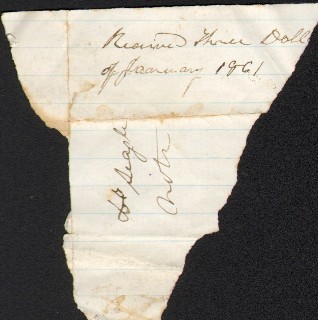 Received Three Doll
of January 1861
Seagle
note